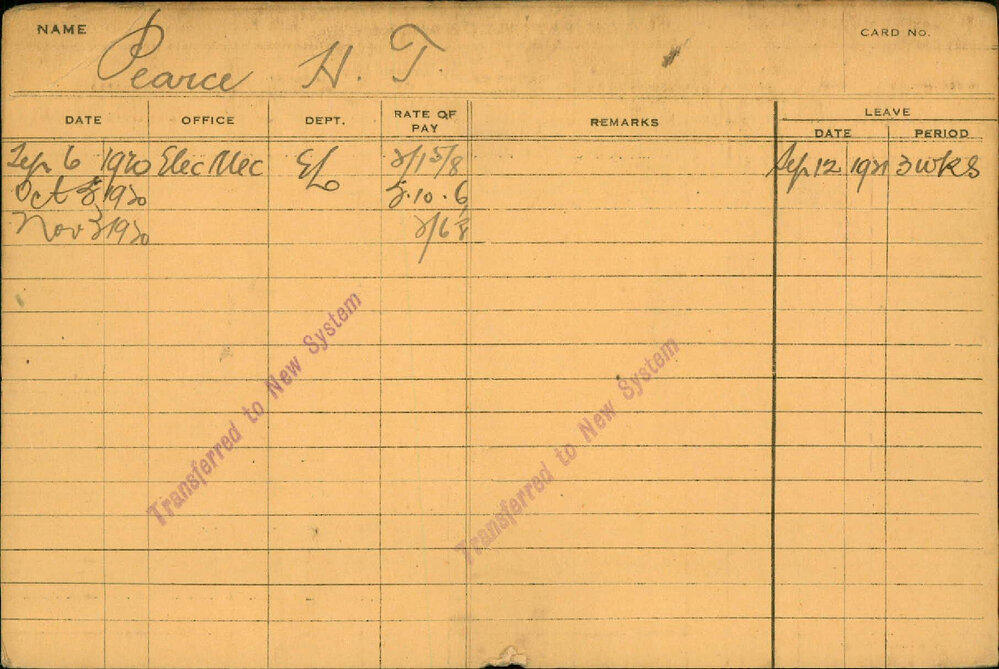 NAME Pearce H. T. CARD NO.
DATE OFFICE DEPT. RATE OF PAY REMARKS LEAVE
DATE PERIOD
Sep 6 1920 Elec Mec EL 2/1 5/8 Sep 12 1921 3 wks
Oct 1920 5.10.6
Nov 3 1920 2/6
Transferred to New System
Transferred to New System